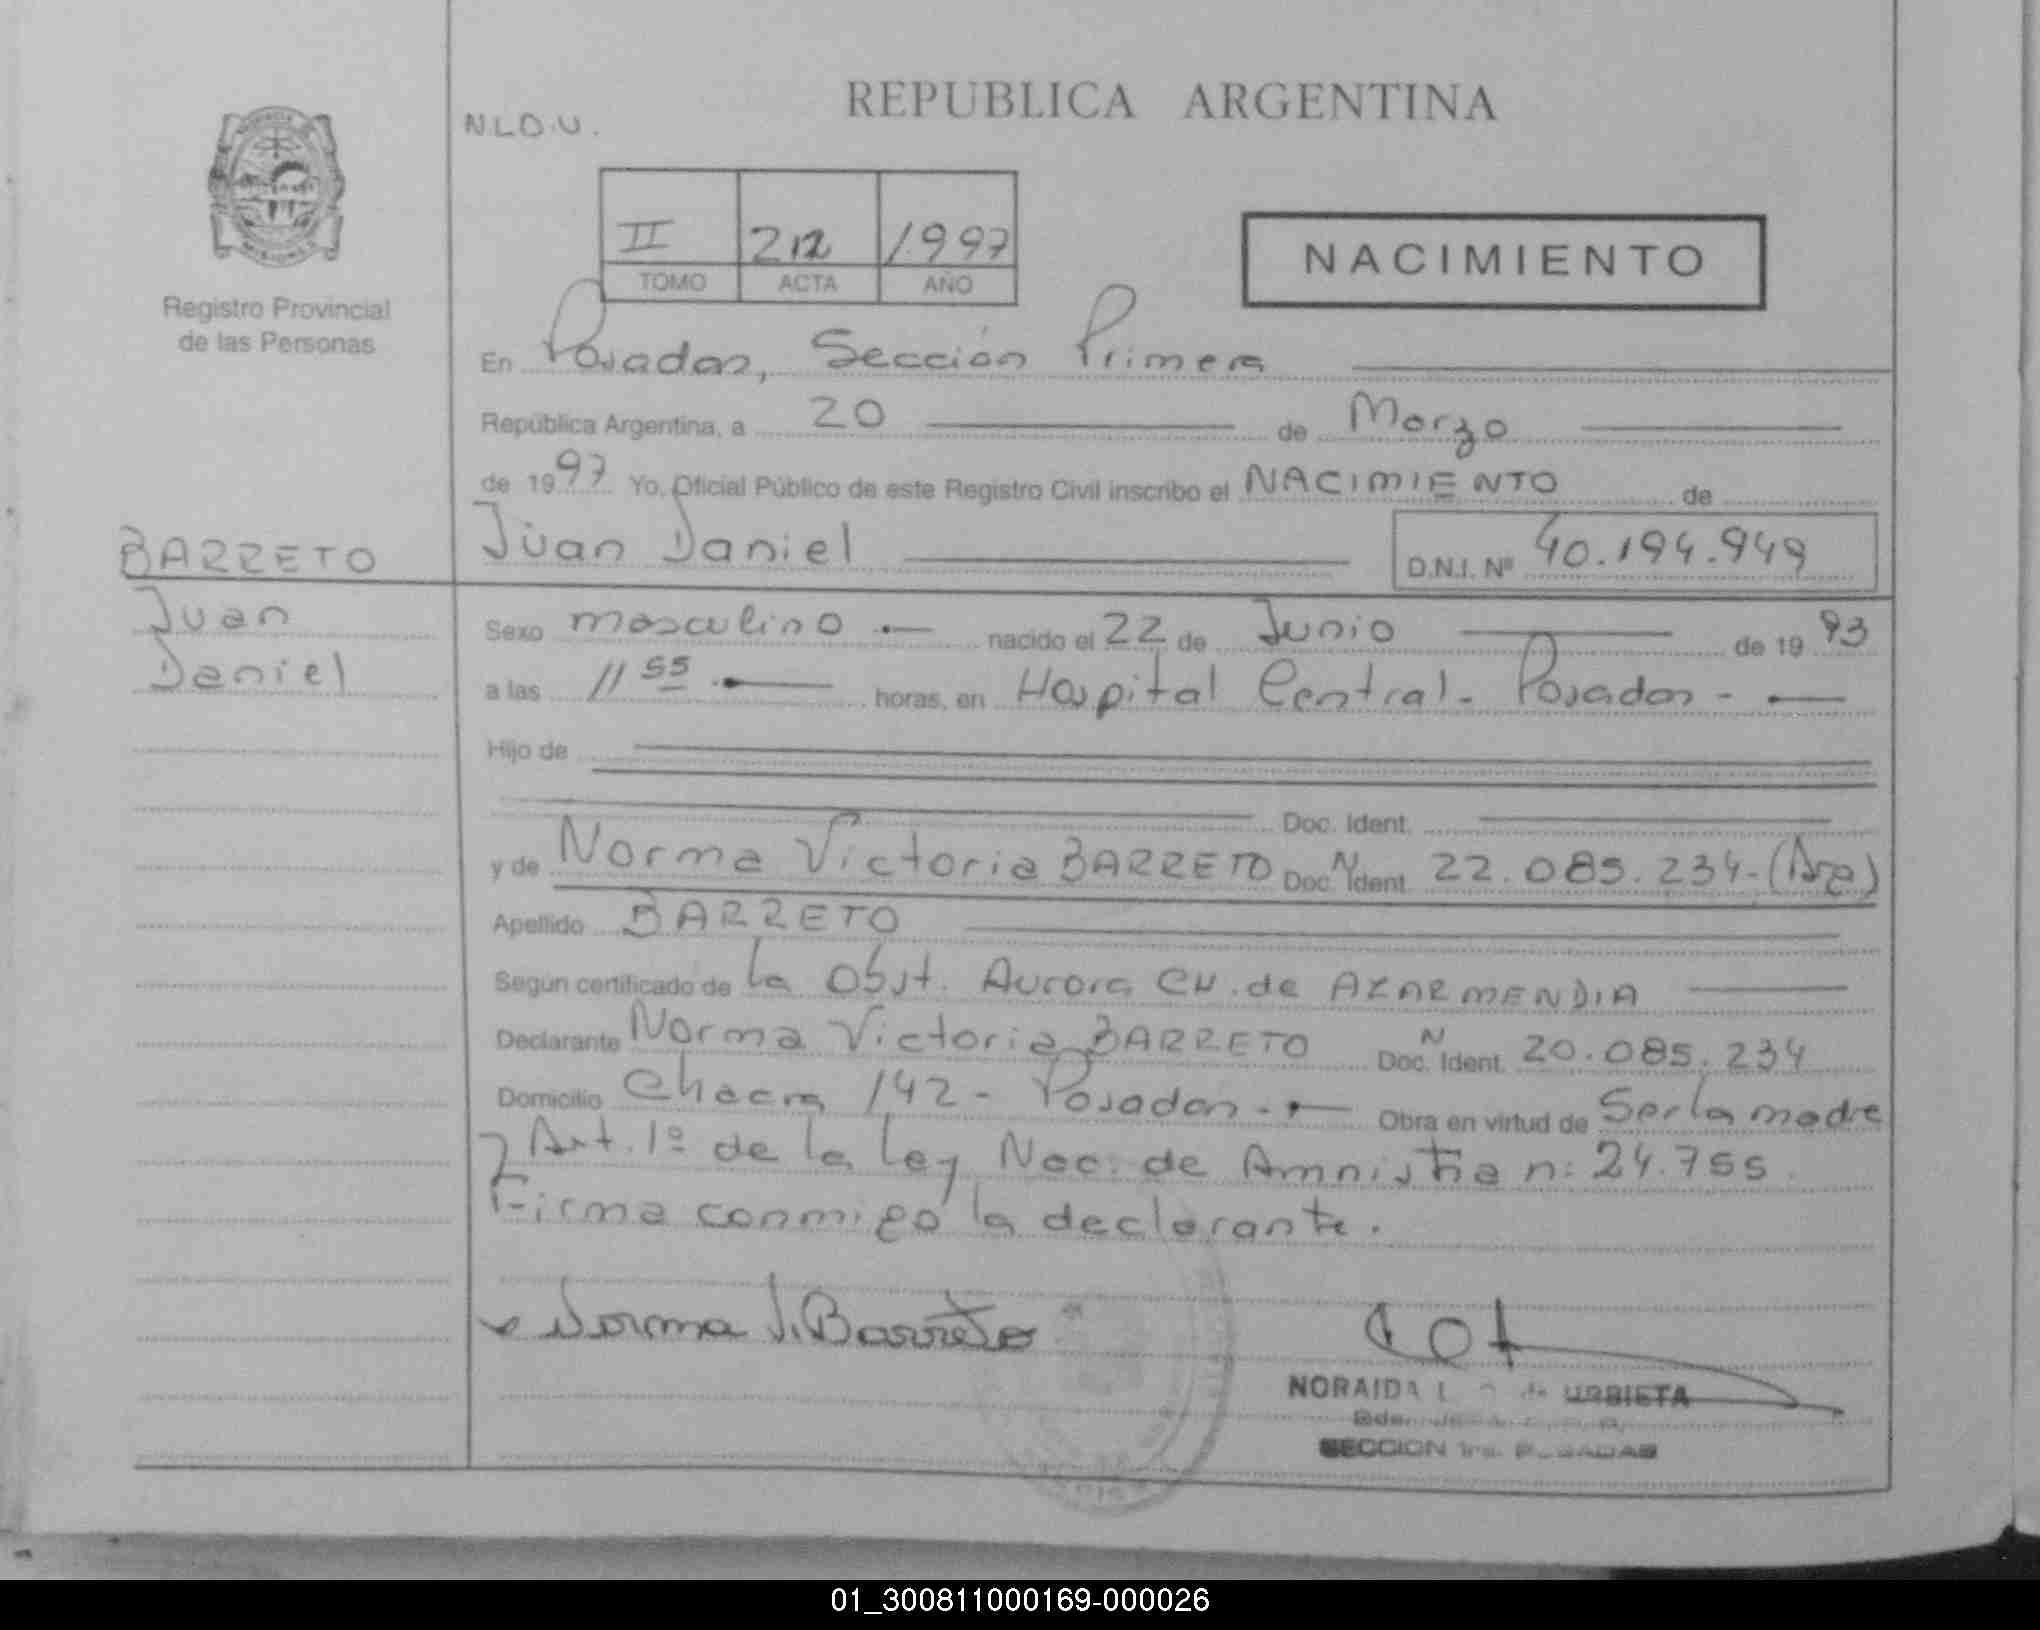 REPUBLICA ARGENTINA
N.L.D.U.
II 212 1997
TOMO ACTA AÑO
NACIMIENTO
Registro Provincial
de las Personas
En Posadas, Sección Primera
República Argentina, a 20 de Marzo
de 1997 Yo, Oficial Público de este Registro Civil inscribo el NACIMIENTO de
BARRETO
Juan Daniel D.N.I. Nº 40.194.949
Juan
Daniel
Sexo masculino nacido el 22 de Junio de 1993
a las 11 55 horas, en Hospital Central - Posadas -
Hijo de
Doc. Ident.
y de Norma Victoria BARRETO Doc. Ident. N 22.085.234 - (Arg)
Apellido BARRETO
Según certificado de la Obst. Aurora CH. de AZARMENDIA
Declarante Norma Victoria BARRETO Doc. Ident. N 20.085.234
Domicilio Chacra 142 - Posadas - Obra en virtud de Ser la madre
y Art. 1º de la Ley Nac. de Amnistia n: 24.755.
Firma conmigo la declarante.
Norma V. Barreto
NORAIDA L. de URBIETA
SECCION 1ra. POSADAS
01_300811000169-000026